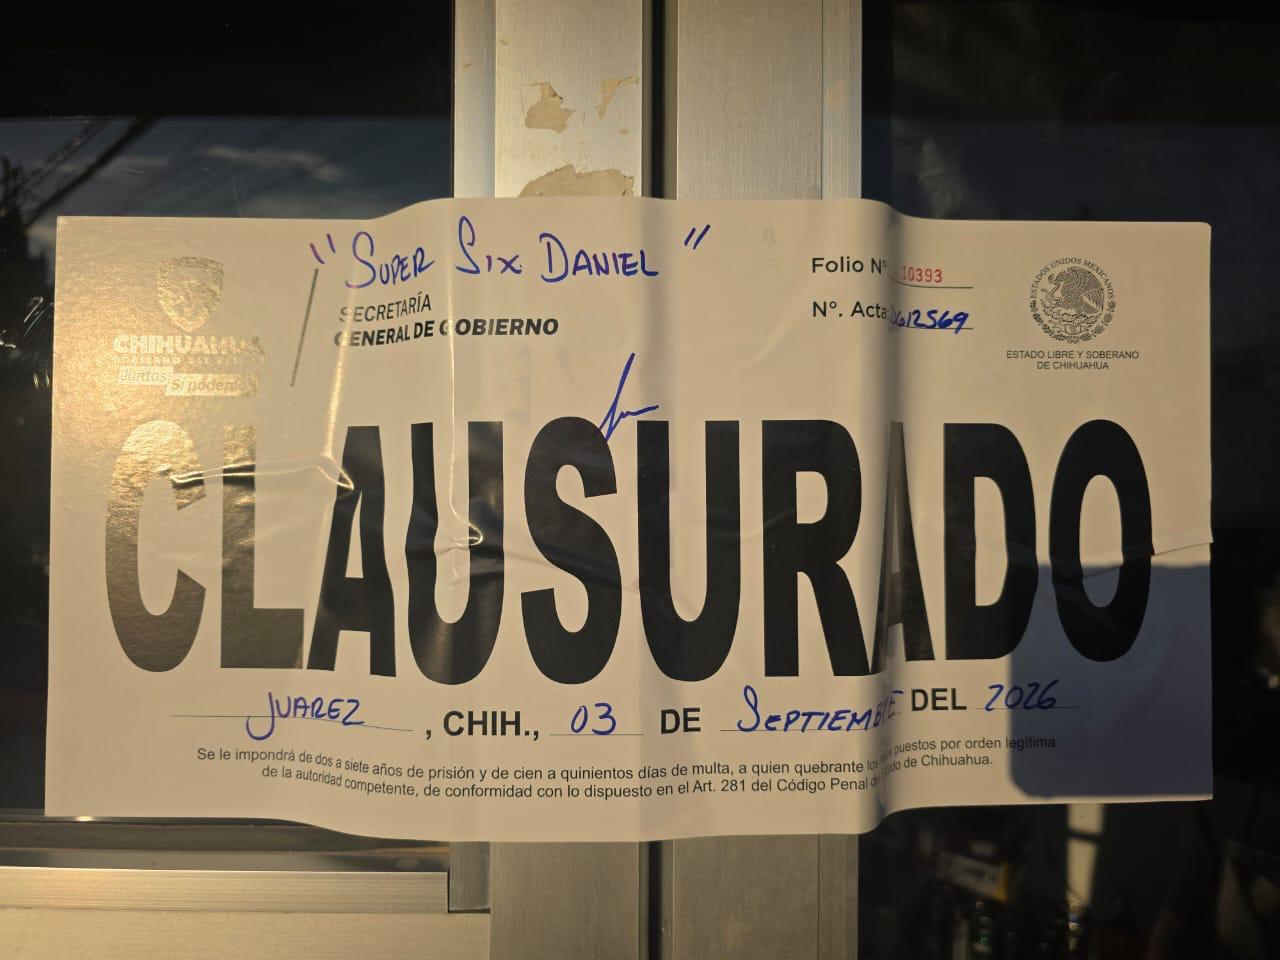 "SUPER SIX DANIEL"
CHIHUAHUA
GOBIERNO DEL ESTADO
Juntos Sí podemos
SECRETARÍA
GENERAL DE GOBIERNO
Folio N° 10393
N°. Acta
ESTADOS UNIDOS MEXICANOS
ESTADO LIBRE Y SOBERANO
DE CHIHUAHUA
CLAUSURADO
JUAREZ, CHIH., 03 DE SEPTIEMBRE DEL 2026
Se le impondrá de dos a siete años de prisión y de cien a quinientos días de multa, a quien quebrante los puestos por orden legítima
de la autoridad competente, de conformidad con lo dispuesto en el Art. 281 del Código Penal de Chihuahua.